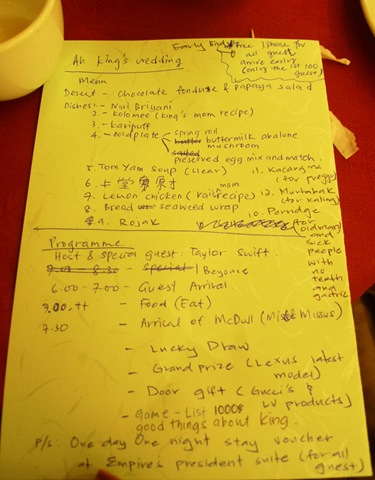 Early Bird free Iphone for
all guest
arrive early
(only the 1st 100
guest)
Ah King's wedding
Menu
Desert - Chocolate fondue & Papaya salad
Dishes 1- Nasi Briyani
2- Kolomee (King's mom recipe)
3- Karipuff
4. - coldplate spring roll
buttermilk abalone
mushroom
preserved egg mix and match.
5. Tom Yam soup (clear)
7. Lemon chicken (rais mom recipe)
8. Bread seaweed wrap
9. Rojak
11. Kacangma
(for preggy)
12. Murtabak
(for kaling)
10. Porridge
(for
oldman)
and
sick
people
with
no
teeth
and
gastric
Programme
Host & special guest: Taylor Swift
7.00 - 8.30 - Special / Beyonce
6.00 - 7.00 - Guest Arrival
7.00.++ - Food (Eat)
7.30 - Arrival of McDull (Miss Missus)
- Lucky Draw
- Grand prize (Lexus latest
model)
- Door gift (Gucci's &
LV products)
- Game - List 1000$
good things about King.
P/s: One day One night stay voucher
at Empire's president suite (for all
guest)